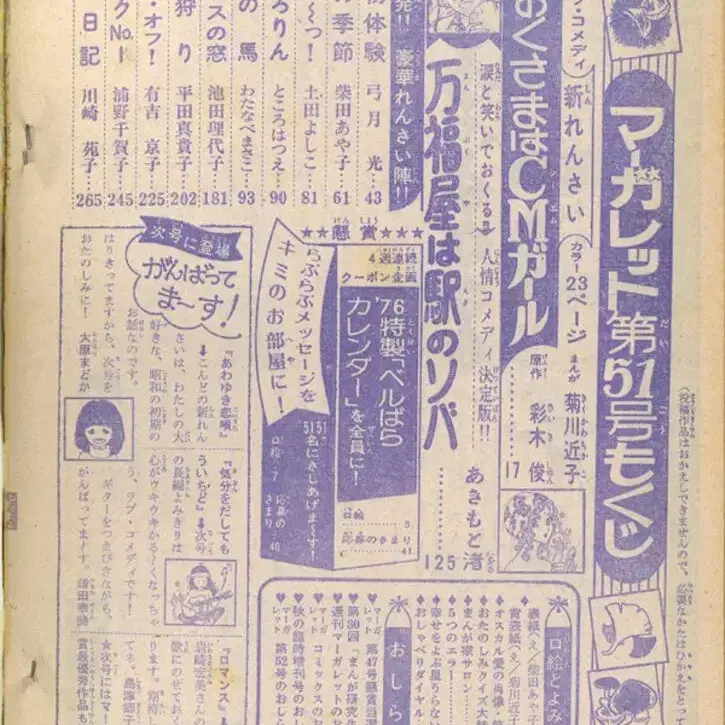 マーガレット第51号もくじ
(投稿作品はおかえしできませんので、必要なかたはひかえをとっ
ブ・コメディ
新れんさい
カラー23ページ
おくさまはCMガール
まんが 菊川近子
原作 彩木 俊
17
涙と笑いでおくる
人情コメディ決定版!!
万福屋は駅のソバ
あきもと渚
125
発!! 豪華れんさい陣!!
初体験 弓月 光…43
の季節 柴田あや子…61
〜っ! 土田よしこ…81
ろりん ところはつえ…90
の 馬 わたなべまさこ…93
スの窓 池田理代子…181
狩 り 平田真貴子…202
・オフ! 有吉 京子…225
クNo.1 浦野千賀子…245
日記 川崎 苑子…265
★★懸賞★★★
4週連続
クーポン企画
'76特製「ベルばら
カレンダー」を全員に!
口絵 5
応募のきまり 41
らぶらぶメッセージを
キミのお部屋に!
5151名にさしあげま〜す!
口絵・7
応募のきまり・40
次号に登場
がんばって
ま〜す!
『あわゆき恋唄』
↓こんどの新れん
さいは、わたしの大
好きな、昭和の初期の
お話なのです。
はりきってますから、次号を
おたのしみに! 大原まどか
『気分をだしても
ういちど』↓次号
の長編よみきりは
心がウキウキかる〜くなっちゃ
う、ラブ・コメディです!
ギターをつまびきながら、
がんばってま〜す。
『ロマンス』
岩崎宏美さんの
歌にのせてお
ります。期待し
てネ。
★次号にはマー
賞最優秀作品も
口絵とよみ
表紙(え/柴田あや子
賞表紙(え/菊川近
オスカル愛の肖像・第
おたのしみクイズや
まんが塾サロン
5つのエラー
幸せをよぶ星うらない
おしゃべりダイヤル
おしら
マーガレット第47号懸賞当選
第30回「まんが研究
週刊マーガレットの
マーガレットコミックスのお
秋の臨時増刊号のお
マーガレット第52号のおし